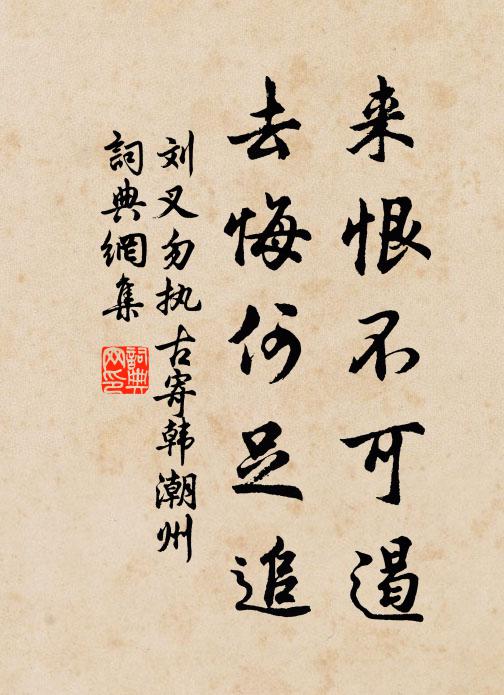 来恨不可遏
去悔何足追
刘叉勿执古寄韩潮州
詞典網集
詞典
网印